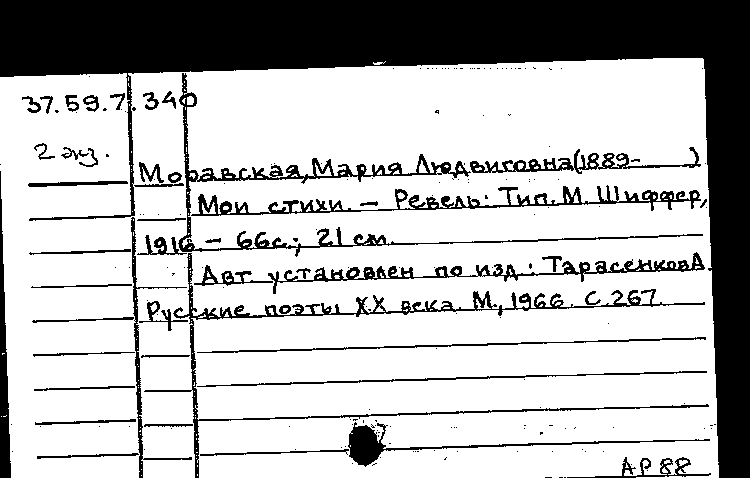 37.59.7.340
2 экз.
Моравская, Мария Людвиговна (1889-    )
Мои стихи. – Ревель: Тип. М. Шиффер,
1916. – 66с.; 21 см.
Авт. установлен по изд.: Тарасенков А.
Русские поэты XX века. М., 1966. С. 267.
АР 88